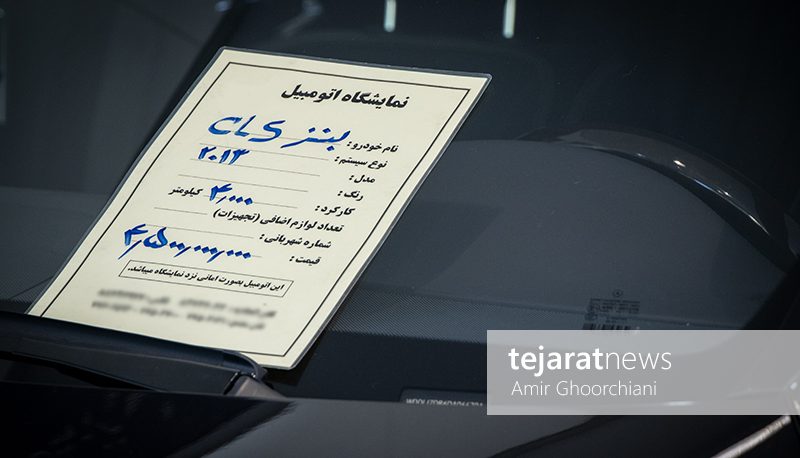 نمایشگاه اتومبیل
نام خودرو : بنز CLS
نوع سیستم :
مدل : ۲۰۱۳
رنگ :
کارکرد : ۴,۰۰۰ کیلومتر
تعداد لوازم اضافی (تجهیزات)
شماره شهربانی :
قیمت : ۴,۵۰۰,۰۰۰,۰۰۰
این اتومبیل بصورت امانی نزد نمایشگاه میباشد.
tejaratnews
Amir Ghoorchiani